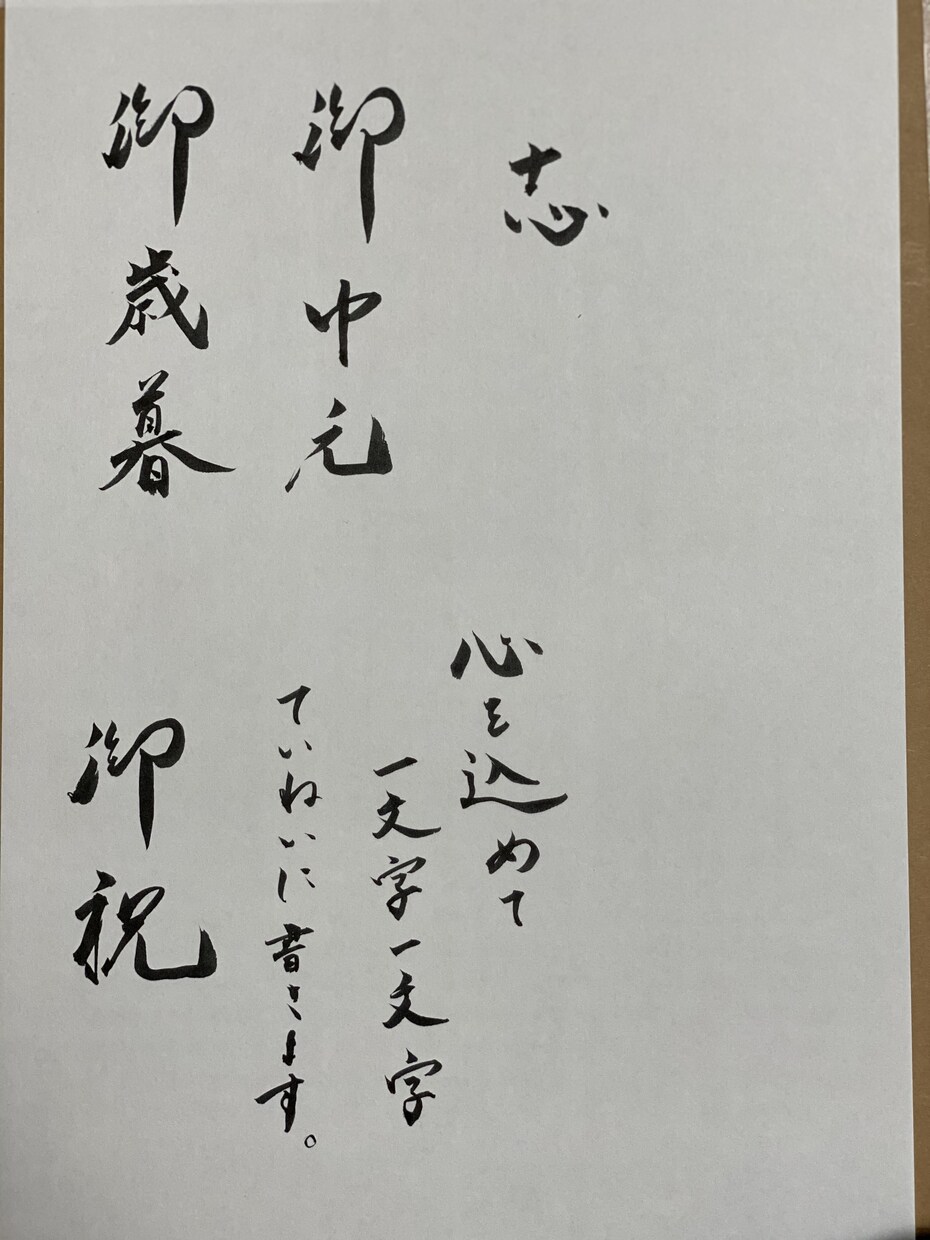 志
御中元
御歳暮
心を込めて
一文字一文字
ていねいに書きます。
御祝